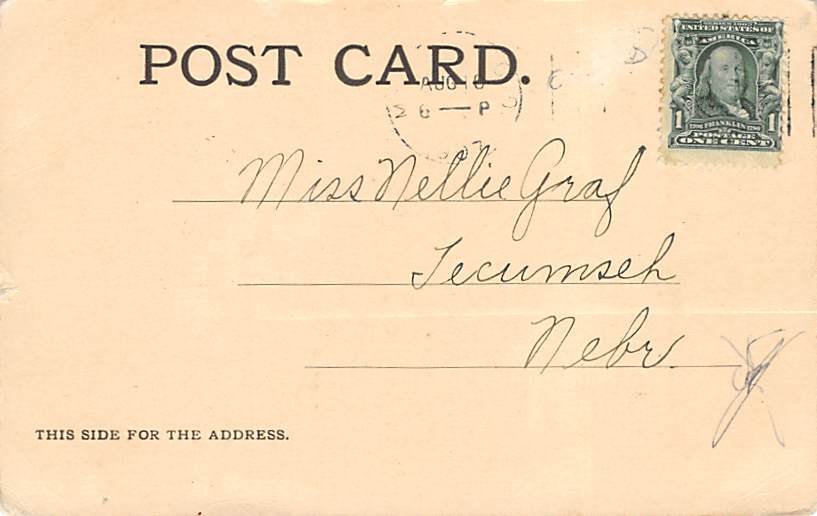 SERIES 1902
UNITED STATES OF
AMERICA
POST CARD.
AUG 18
6 — P
1 1706 FRANKLIN 1790 1
POSTAGE
ONE CENT
D
C
Miss Nellie Graf
Tecumseh
Nebr.
THIS SIDE FOR THE ADDRESS.